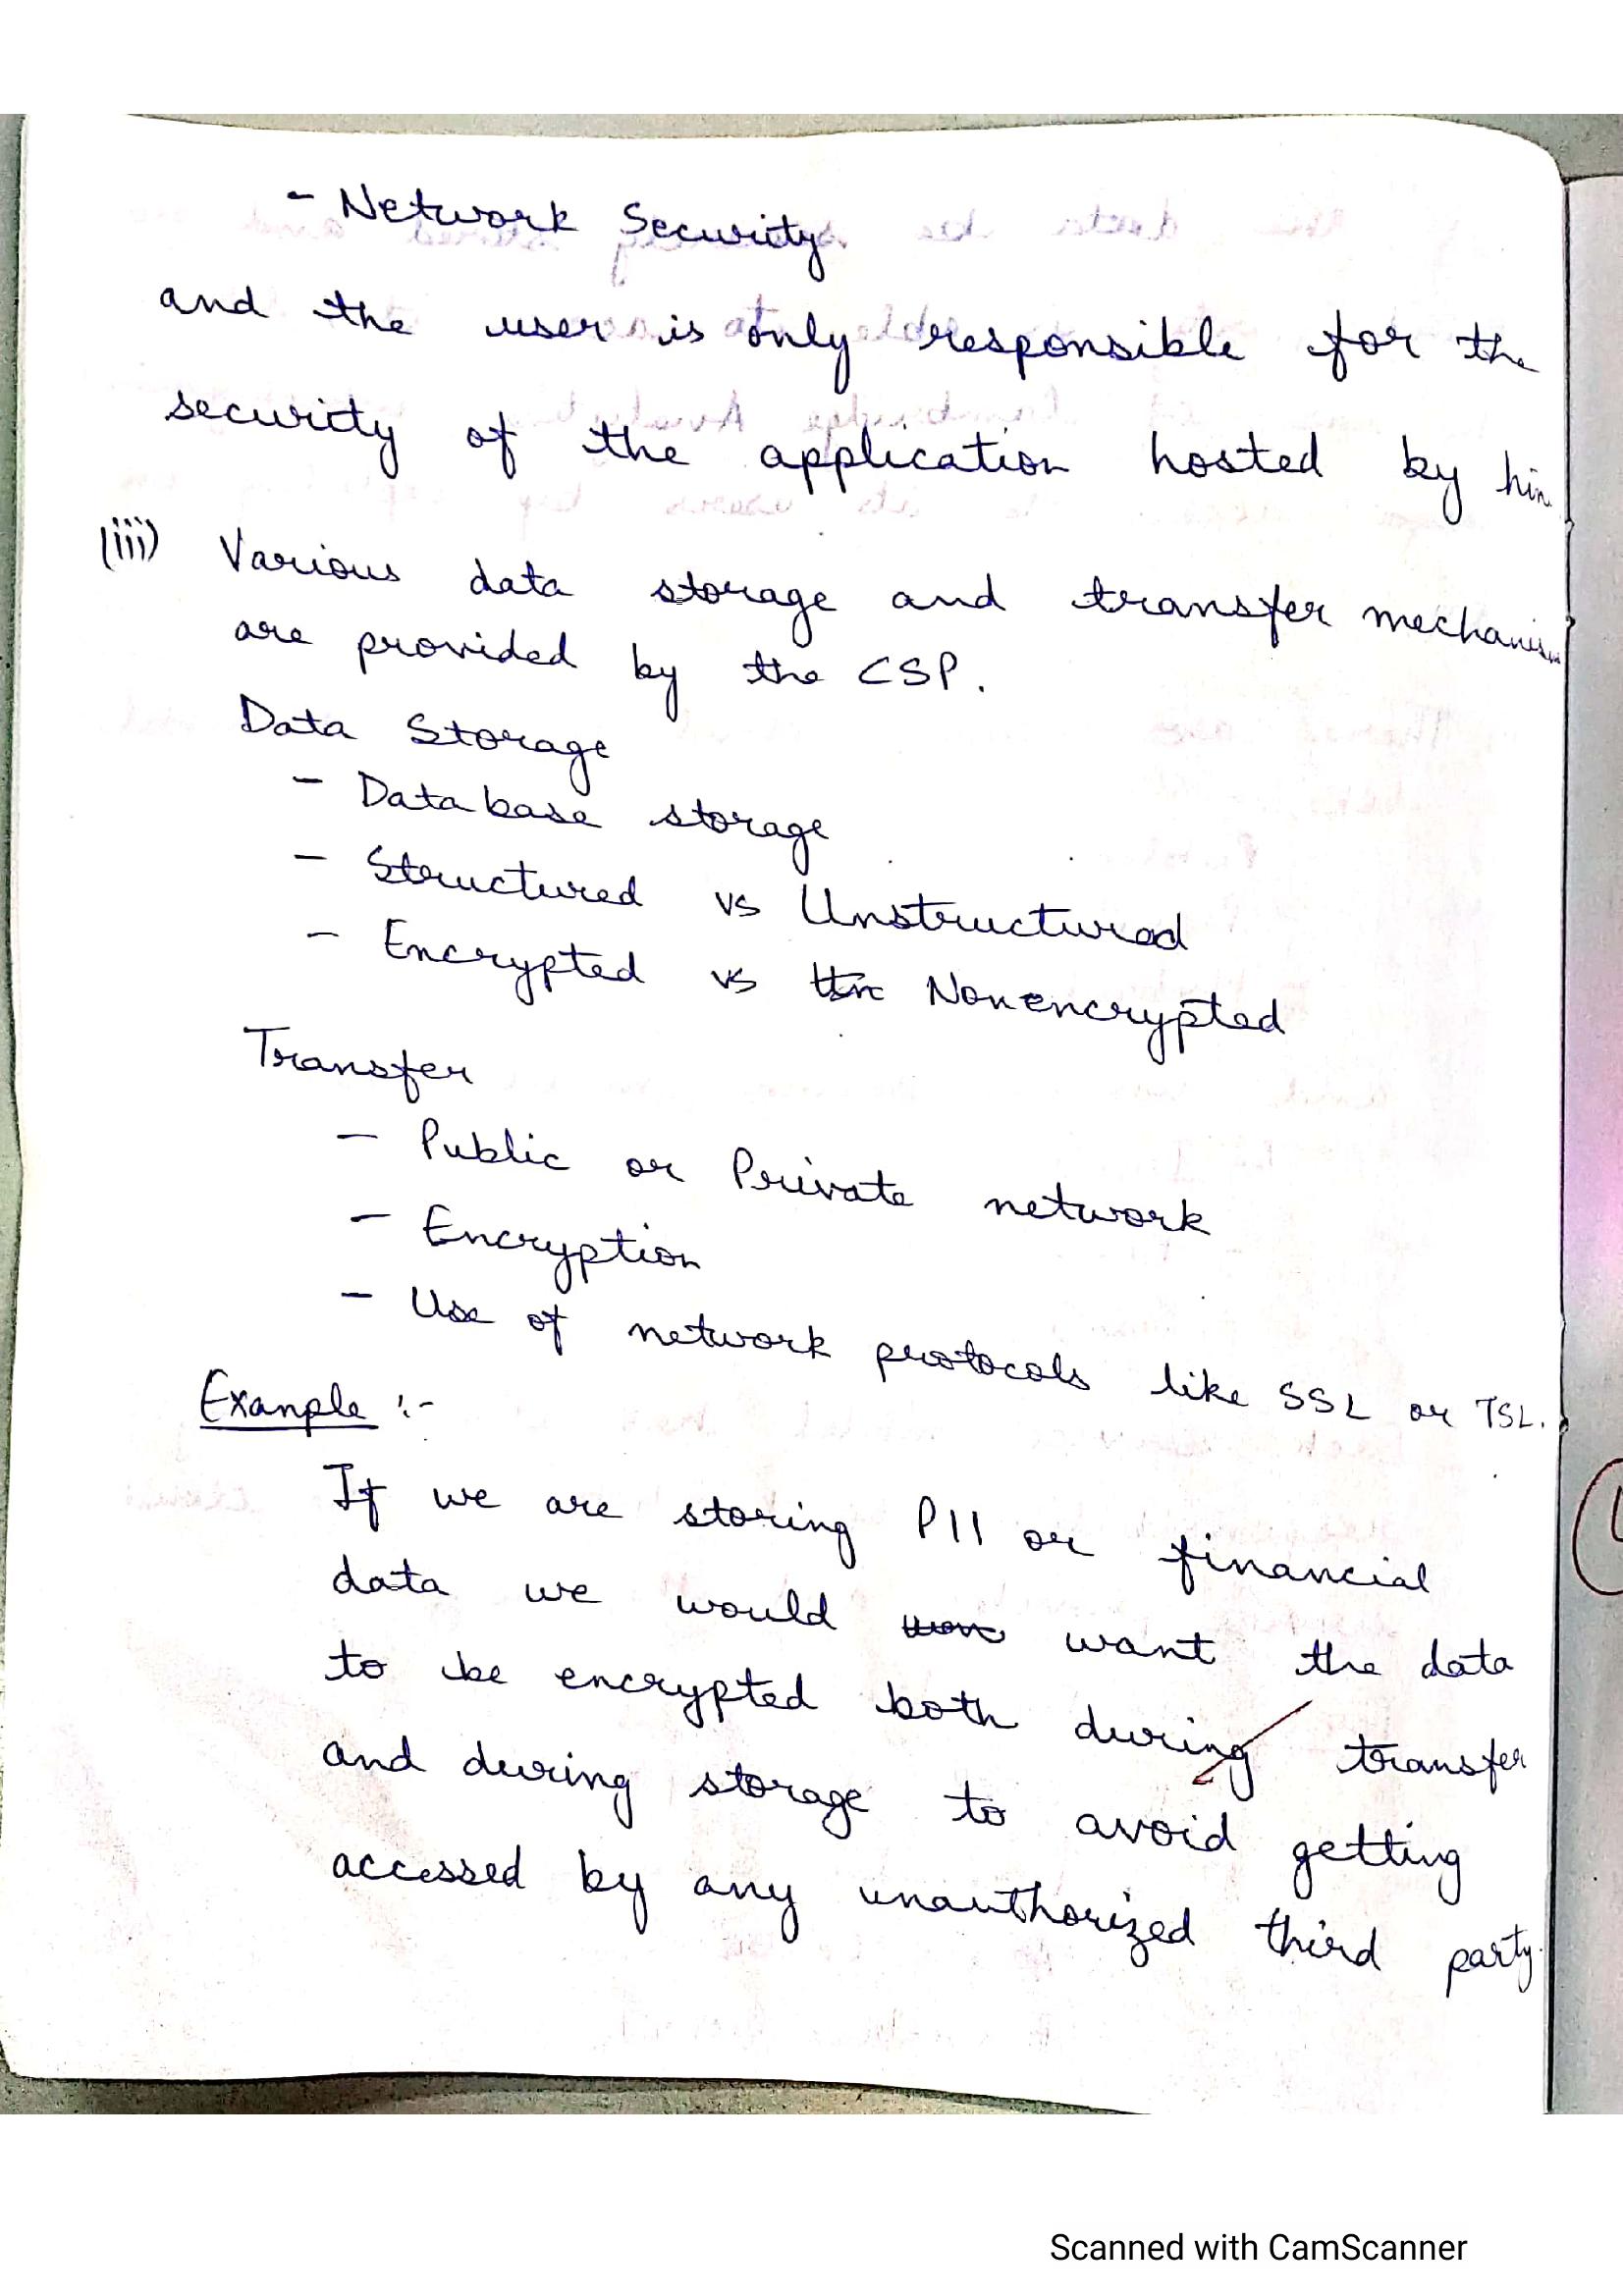 - Network Security
and the user is only responsible for the
security of the application hosted by him
(iii) Various data storage and transfer mechanism
are provided by the CSP.
Data Storage
- Database storage
- Structured vs Unstructured
- Encrypted vs Nonencrypted
Transfer
- Public or Private network
- Encryption
- Use of network protocols like SSL or TSL.
Example :-
If we are storing PII or financial
data we would want the data
to be encrypted both during transfer
and during storage to avoid getting
accessed by any unauthorized third party.
Scanned with CamScanner